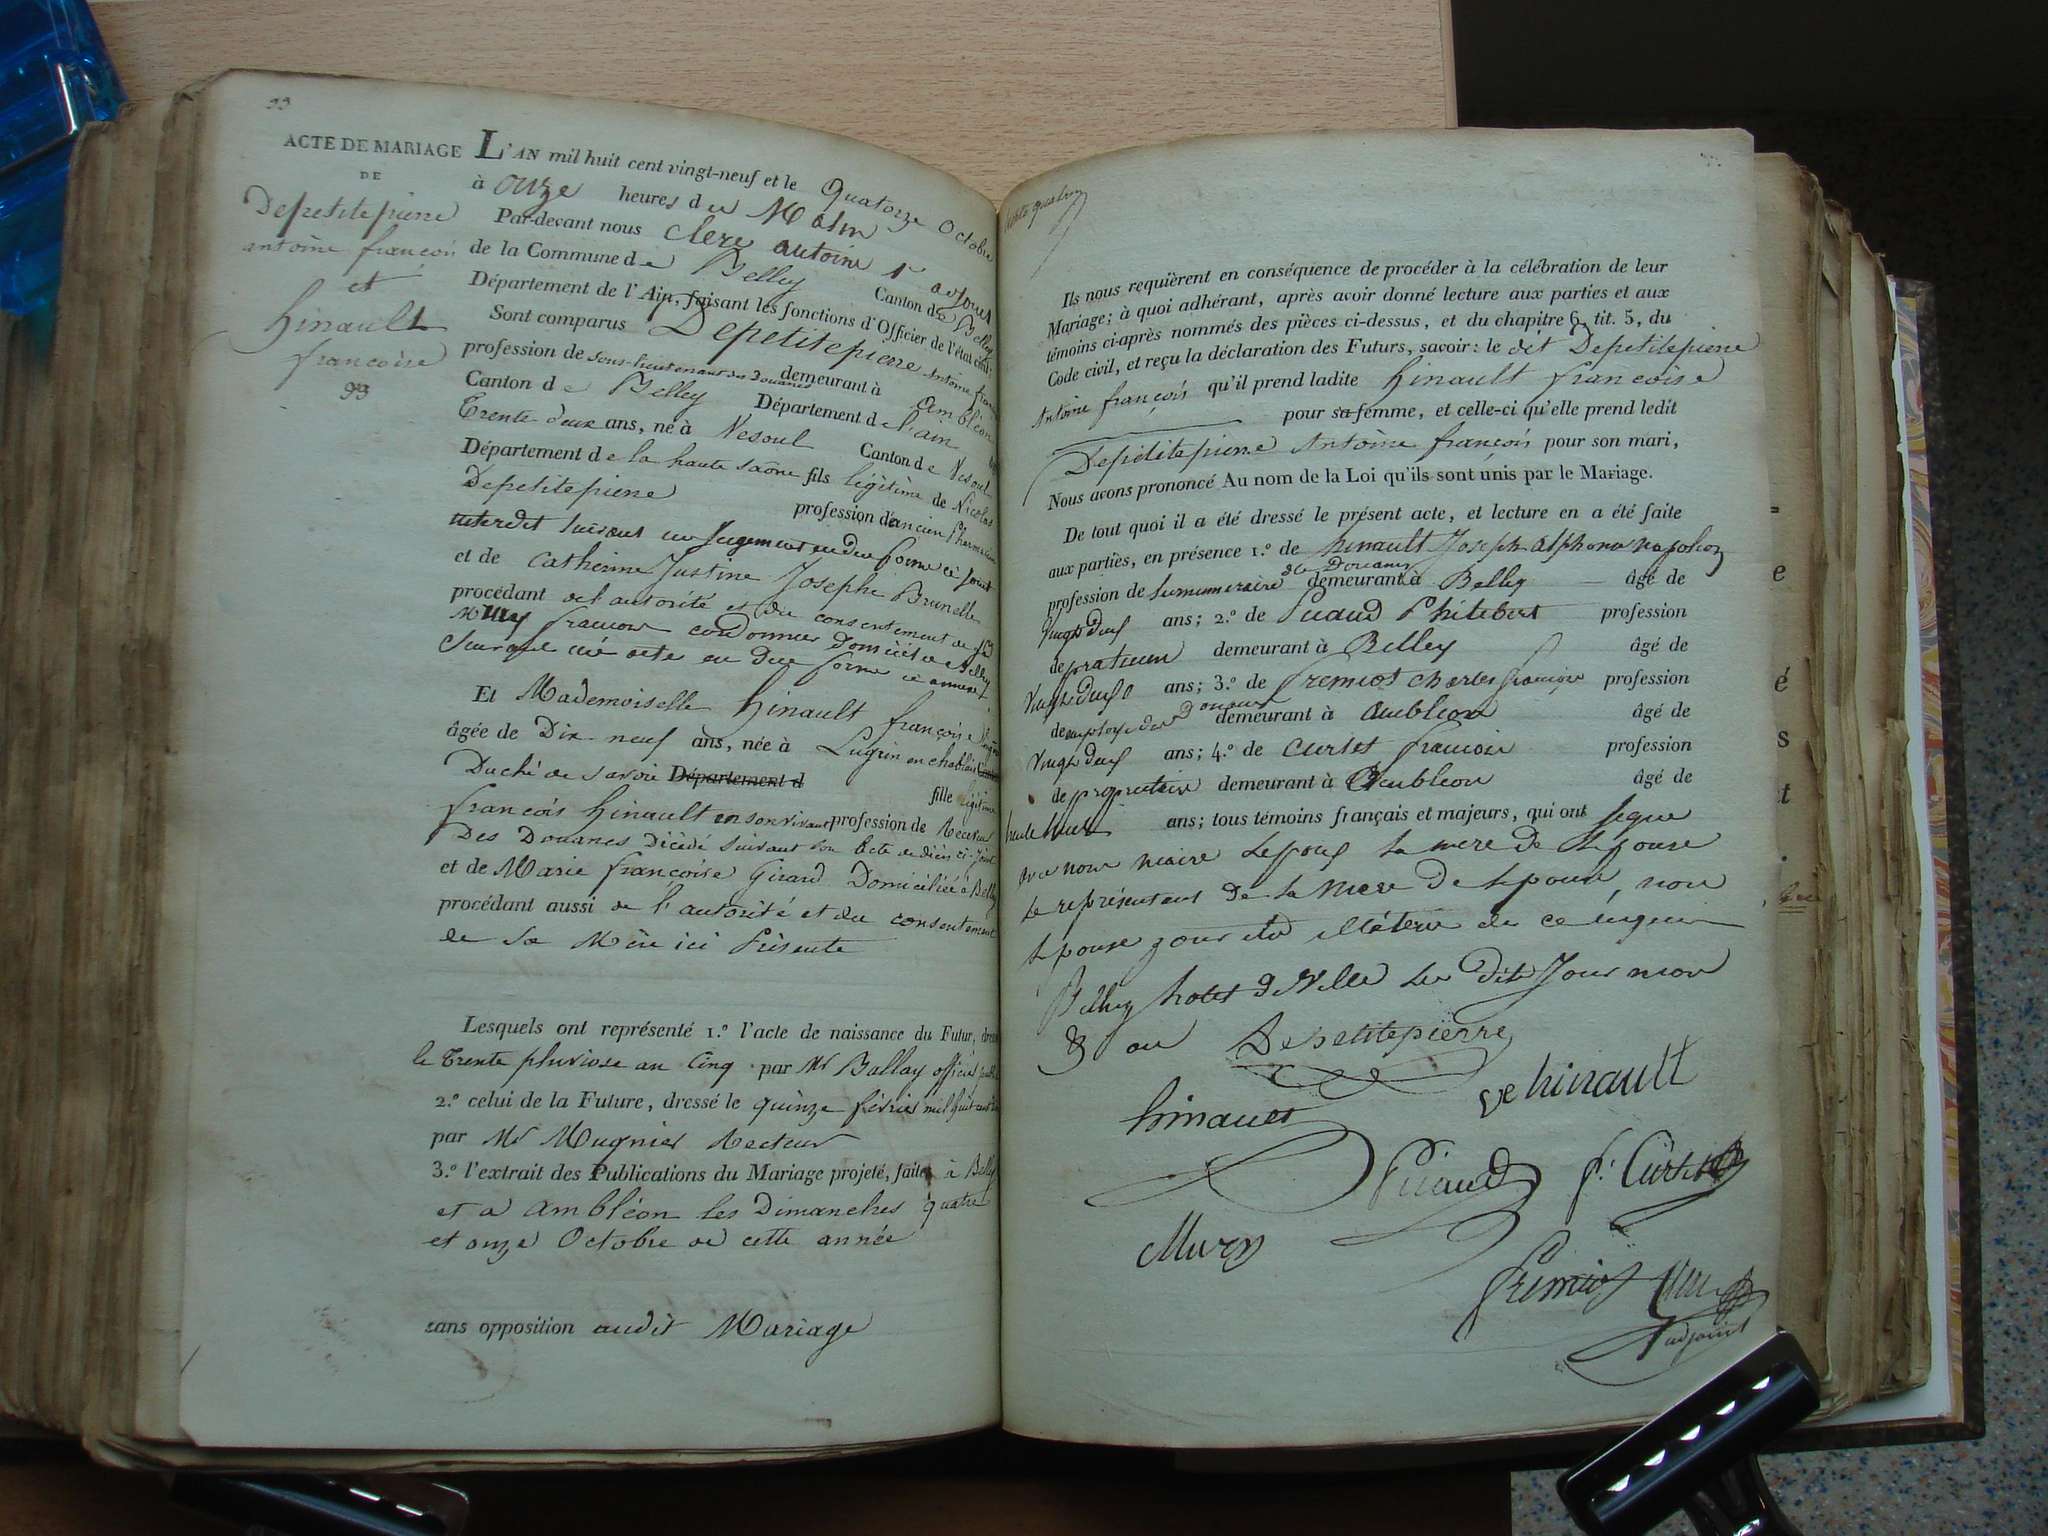 93
ACTE DE MARIAGE
DE
Depetitepierre
antoine françois
et
hinault
francoise
93
L'AN mil huit cent vingt-neuf et le Quatorze Octobre
à onze heures du Matin
Par-devant nous Clerc antoine 1r adjoint
de la Commune de Belley Canton de Belley
Département de l'Ain, faisant les fonctions d'Officier de l'état civil,
Sont comparus Depetitepierre Antoine françois
profession de sous-lieutenant des Douanes demeurant à ambléon
Canton de Belley Département de l'ain
Trente deux ans, né à Vesoul Canton de Vesoul
Département de la haute saône fils légitime de Nicolas
Depetitepierre profession d'ancien Pharmacien
interdit suivant un Jugement en due forme ci joint
et de Catherine Justine Josephe Brunelle
procédant de l'autorité et du consentement de
françois cordonnier domicilié a Belley
en due forme ci annexé
Et Mademoiselle hinault françoise
âgée de Dix neuf ans, née à Lugrin en chablais
Duché de savoie Département d fille légitime
françois hinault en son vivant profession de Receveur
Des Douanes Décédé suivant son acte de décès ci-joint
et de Marie françoise Girard Domiciliée à Belley
procédant aussi de l'autorité et du consentement
de sa Mère ici Présente
Lesquels ont représenté 1.º l'acte de naissance du Futur, dressé
le Trente pluviose an Cinq par Mr Ballay officier public
2.º celui de la Future, dressé le quinze février mil huit cent dix
par Mr Mugnier Recteur
3.º l'extrait des Publications du Mariage projeté, faites à Belley
et a Ambléon les Dimanches quatre
et onze Octobre de cette année
sans opposition audit Mariage
Ils nous requièrent en conséquence de procéder à la célébration de leur
Mariage; à quoi adhérant, après avoir donné lecture aux parties et aux
témoins ci-après nommés des pièces ci-dessus, et du chapitre 6, tit. 5, du
Code civil, et reçu la déclaration des Futurs, savoir: le dit Depetitepierre
Antoine françois qu'il prend ladite hinault francoise
pour sa femme, et celle-ci qu'elle prend ledit
Depetitepierre Antoine françois pour son mari,
Nous avons prononcé Au nom de la Loi qu'ils sont unis par le Mariage.
De tout quoi il a été dressé le présent acte, et lecture en a été faite
aux parties, en présence 1.º de hinault Joseph alphonse napoléon
profession de surnuméraire des Douanes demeurant à Belley âgé de
vingt deux ans; 2.º de Puaud Philibert profession
de praticien demeurant à Belley âgé de
ans; 3.º de Fremiot Charles françois profession
de employé des Douanes demeurant à Ambleon âgé de
ans; 4.º de Curtet francois profession
de propriétaire demeurant à Ambleon âgé de
ans; tous témoins français et majeurs, qui ont signé
avec nous maire Lepoux la mere de Lepouse
Le représentant de la mere de Lepoux, non
Lepouse pour etre illétérée de ce enquis
Belley hotel de Ville les dits Jour mois
& an Depetitepierre
ve hinault
hinault
Puaud
f. Curtet
Mury
Fremiot
adjoint